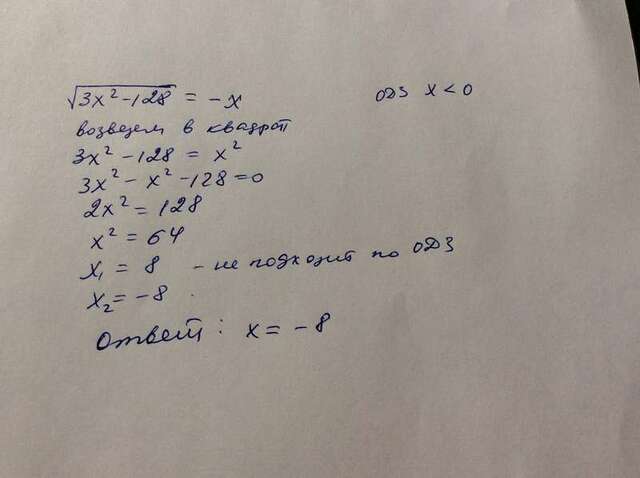 √3x²-128 = -x ОДЗ x < 0
возведем в квадрат
3x² - 128 = x²
3x² - x² - 128 = 0
2x² = 128
x² = 64
x₁ = 8 - не подходит по ОДЗ
x₂ = -8
Ответ: x = -8